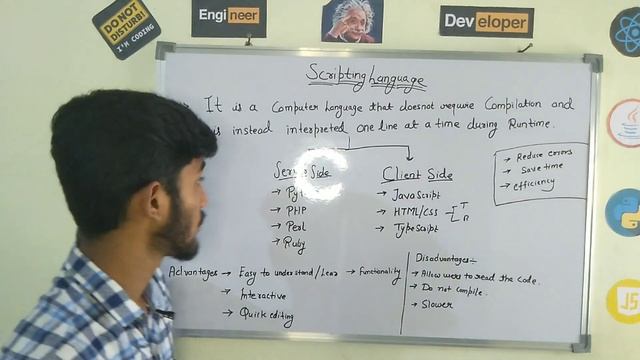 DO NOT
DISTURB!
I'M CODING
Engineer
Developer
Scripting Language
It is a Computer Language that doesnot require Compilation and
is instead interpreted one line at a time during Runtime.
Side
→ PHP
→ Perl
→ Ruby
Client Side
→ JavaScript
→ HTML/CSS
→ TypeScript
→ Reduce errors
→ Save time
→ efficiency
Advantages → Easy to understand/ → functionality
→ Interactive
→ Quick editing
Disadvantages:-
→ Allow users to read the code.
→ Do not compile.
→ Slower
JS